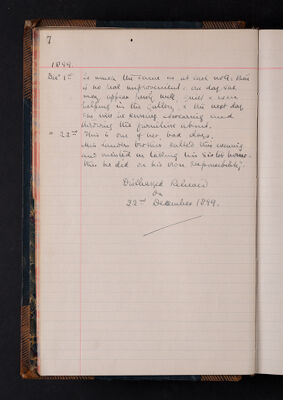 7
1899.
Decr 1st is much the same as at last note. There
is no real improvement: one day she
may appear fairly well, quiet & even
helping in the Gallery, & the next day
she will be swearing and
throwing the furniture about.
" 22nd This is one of her bad days.
Miss Sanders brother called this evening
and insisted in taking his Sister home.
This he did on his own Responsibility.
Discharged Relieved
on
22nd December 1899.